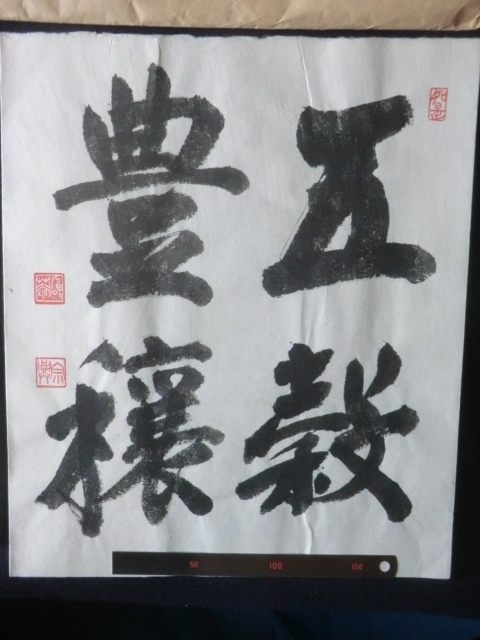 五穀
豊穣
50 100 150